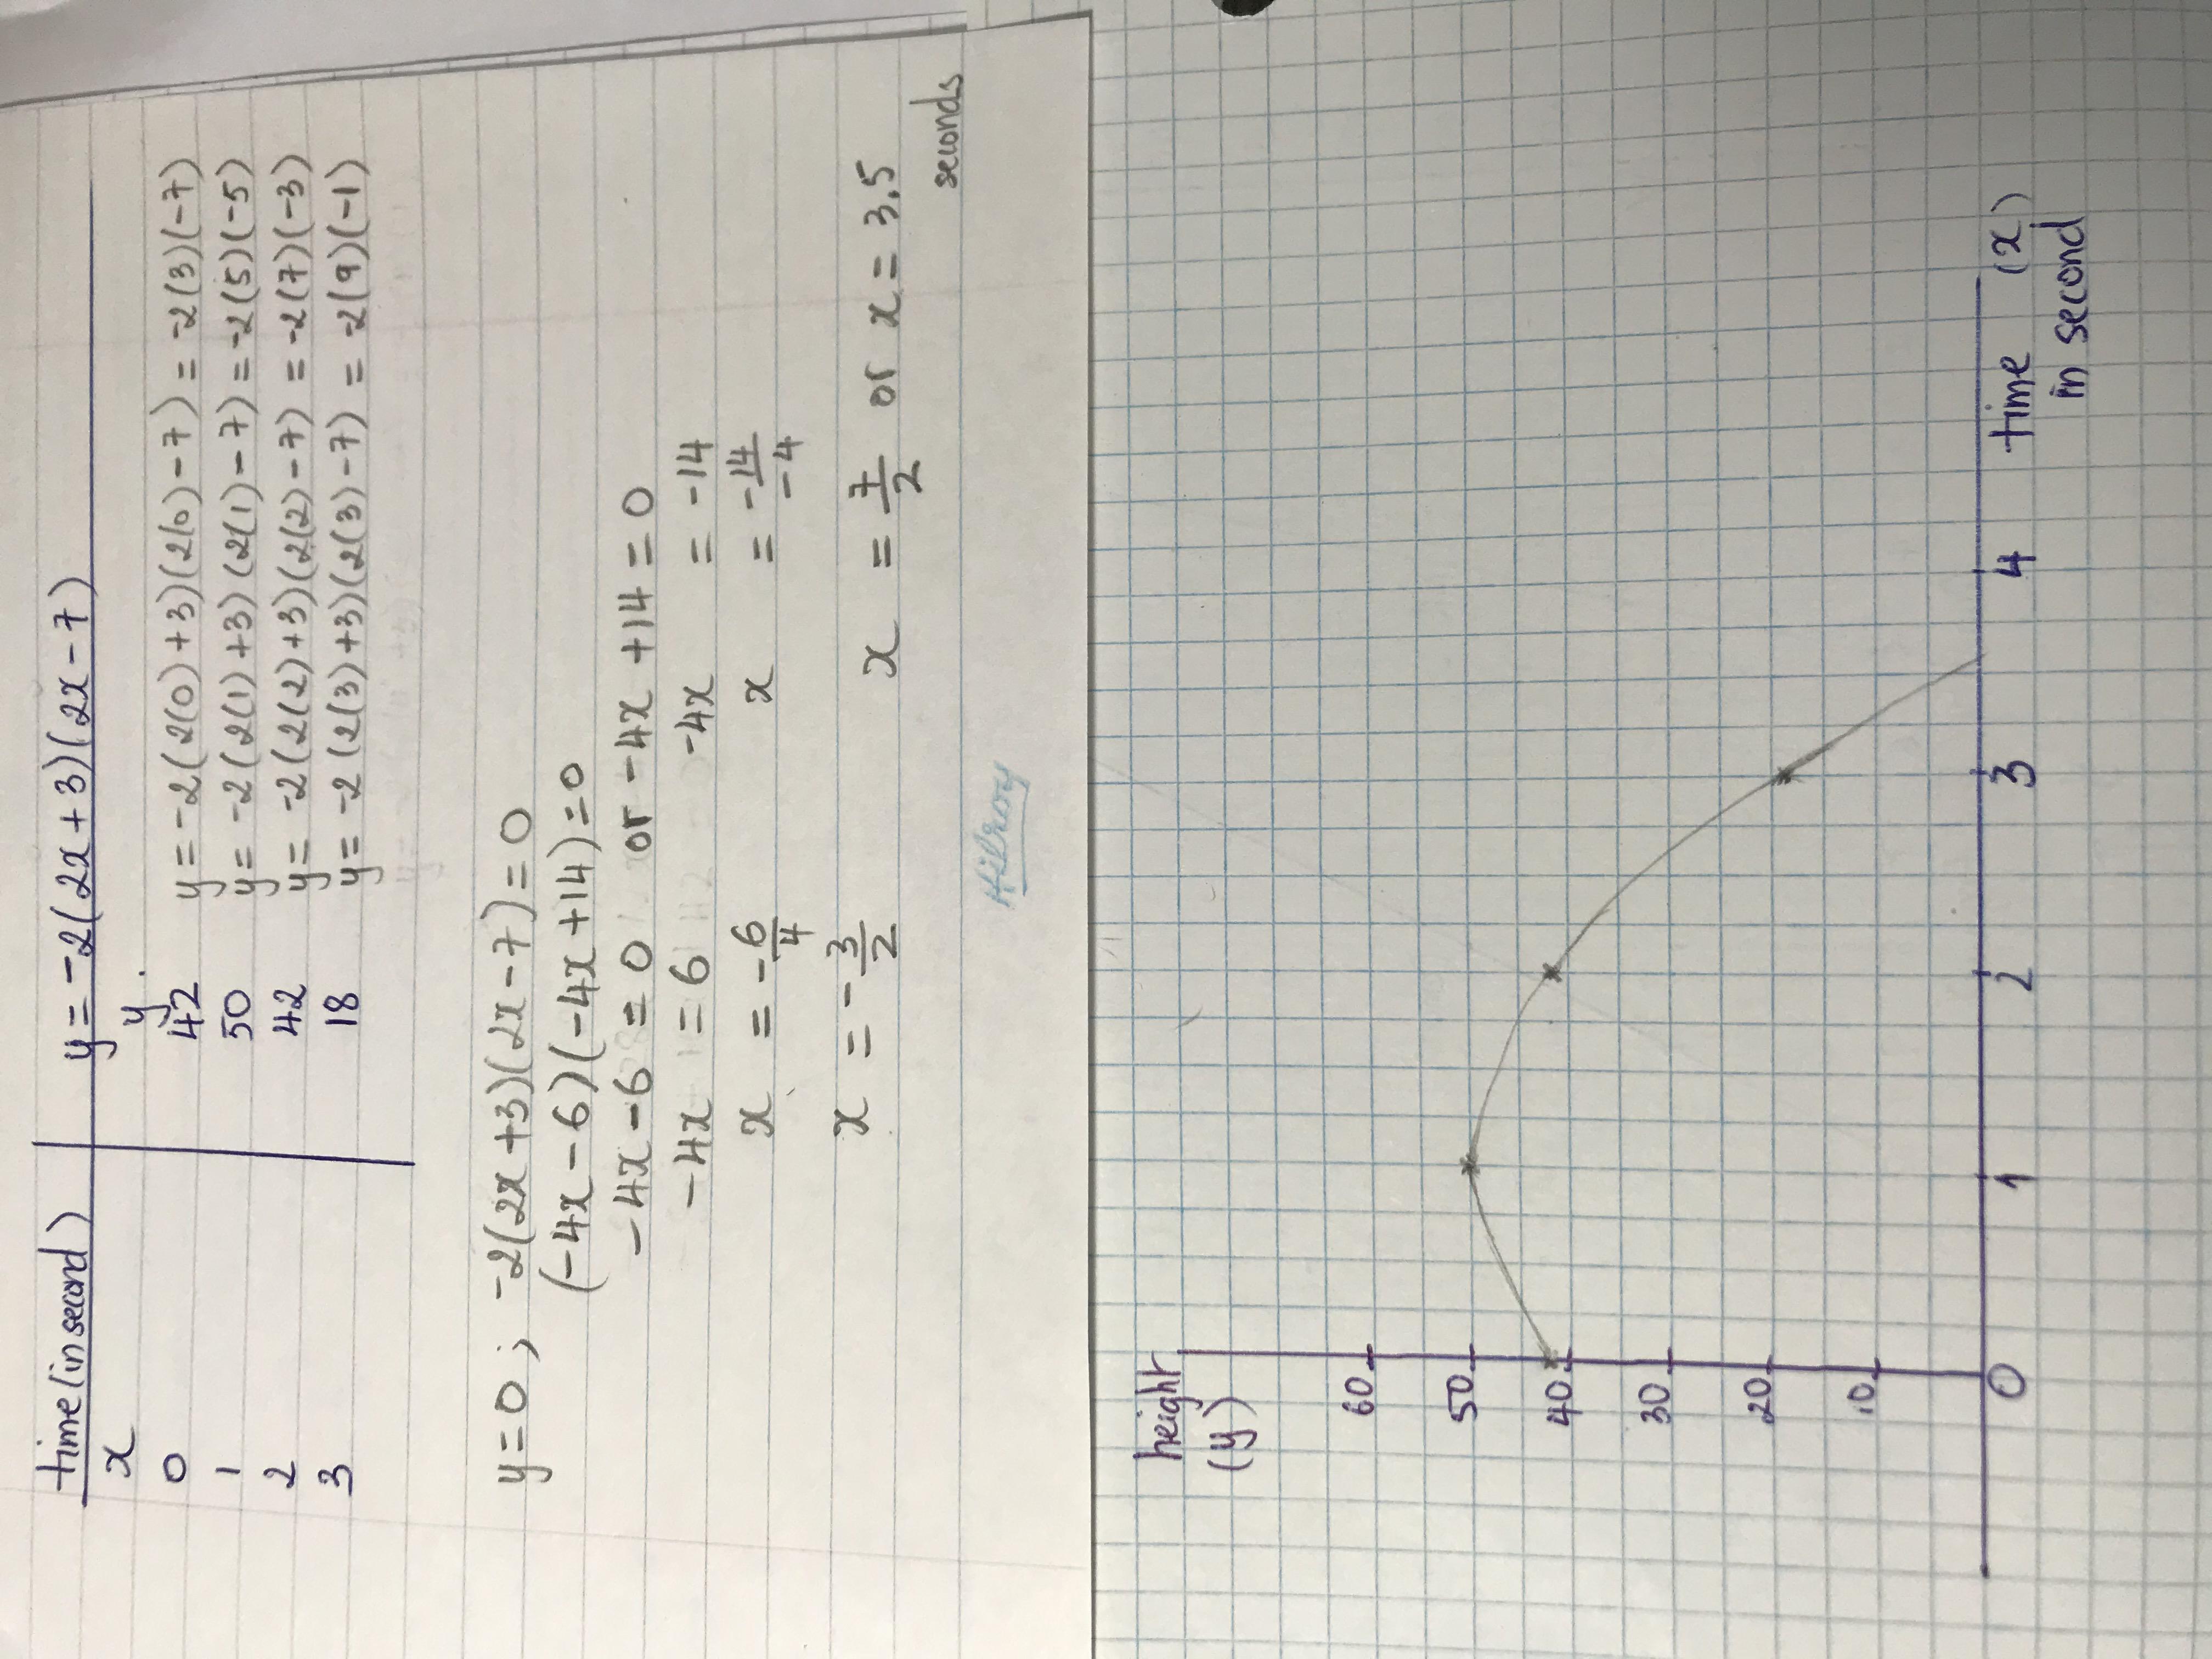 time (in second) y = -2(2x+3)(2x-7)
x y
0 42 y = -2(2(0)+3)(2(0)-7) = -2(3)(-7)
1 50 y = -2(2(1)+3)(2(1)-7) = -2(5)(-5)
2 42 y = -2(2(2)+3)(2(2)-7) = -2(7)(-3)
3 18 y = -2(2(3)+3)(2(3)-7) = -2(9)(-1)
y = 0; -2(2x+3)(2x-7) = 0
(-4x-6)(-4x+14) = 0
-4x-6 = 0 or -4x+14 = 0
-4x = 6 -4x = -14
x = -6/4 x = -14/-4
x = -3/2 x = 7/2 or x = 3.5
seconds
Hilroy
height
(y)
60
50
40
30
20
10
0 1 2 3 4 time (x)
in second